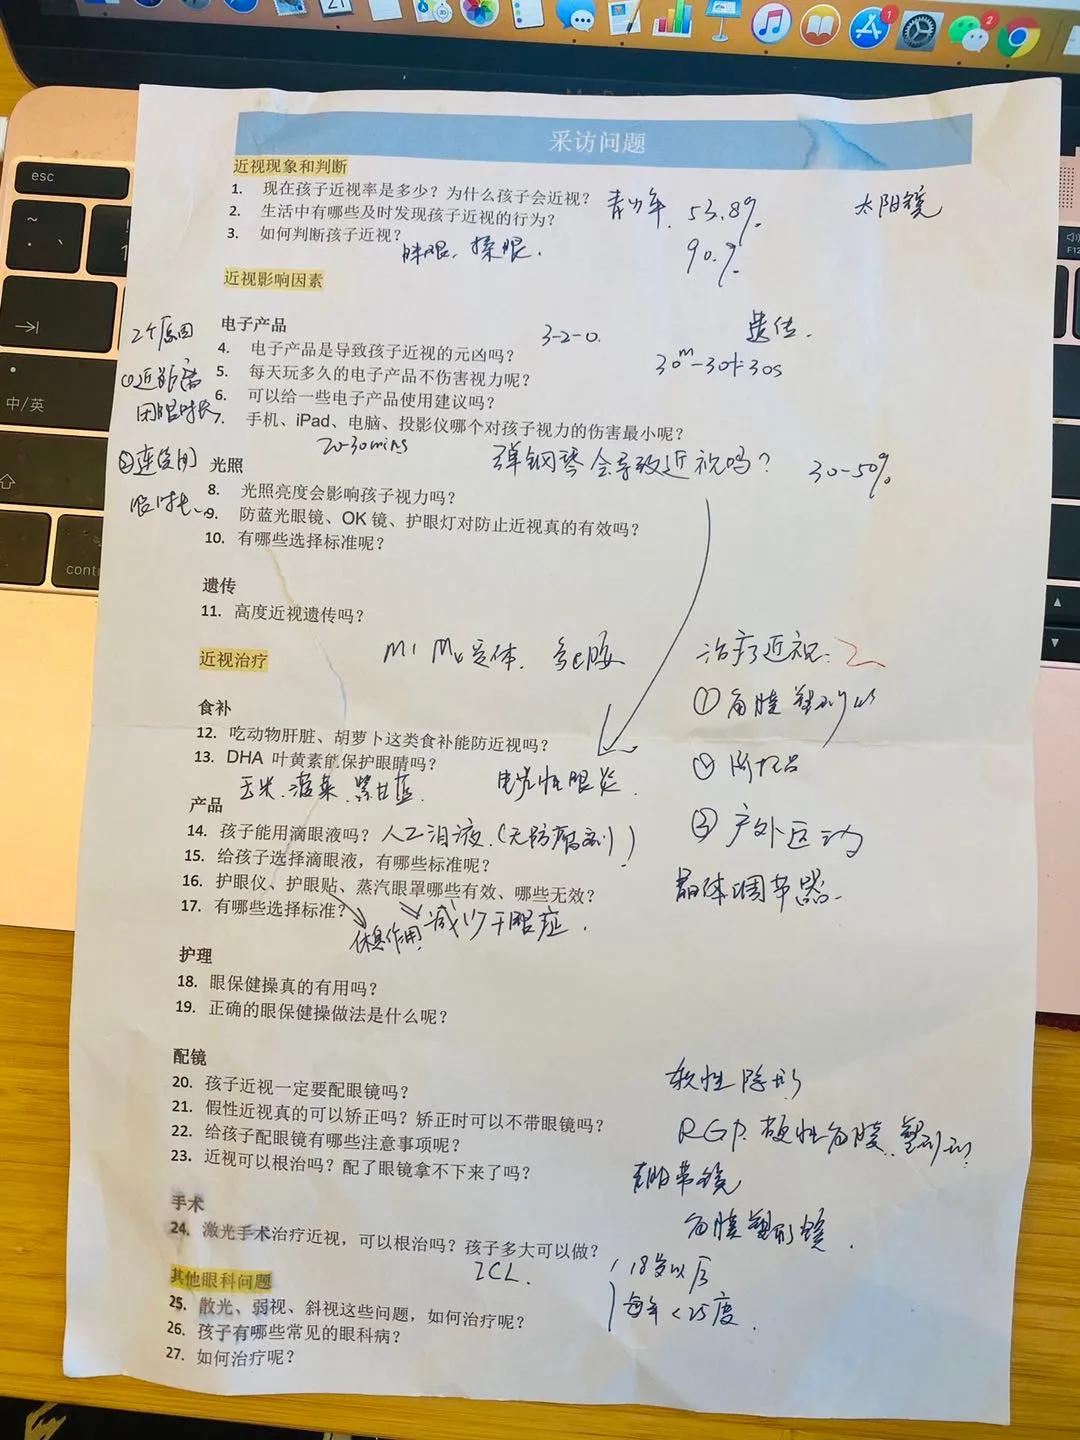 采访问题
近视现象和判断
1. 现在孩子近视率是多少？为什么孩子会近视？ 青少年 53.8% 太阳镜
2. 生活中有哪些及时发现孩子近视的行为？
3. 如何判断孩子近视？ 眯眼、揉眼. 90.%
近视影响因素
电子产品 3-2-0. 遗传.
2个原因
4. 电子产品是导致孩子近视的元凶吗？ 30m-30ft-30s
①近距离
5. 每天玩多久的电子产品不伤害视力呢？
6. 可以给一些电子产品使用建议吗？
用眼时长
7. 手机、iPad、电脑、投影仪哪个对孩子视力的伤害最小呢？
20-30mins 弹钢琴会导致近视吗？ 30-50%
②连续用
光照
8. 光照亮度会影响孩子视力吗？
眼时长
9. 防蓝光眼镜、OK 镜、护眼灯对防止近视真的有效吗？
10. 有哪些选择标准呢？
遗传
11. 高度近视遗传吗？
近视治疗 M1 M4受体. 多巴胺 治疗近视:
①角膜塑形
食补
12. 吃动物肝脏、胡萝卜这类食补能防近视吗？
13. DHA 叶黄素能保护眼睛吗？ ② 阿托品
玉米、菠菜、紫甘蓝. 电光性眼炎.
产品
14. 孩子能用滴眼液吗？ 人工泪液.(无防腐剂) ③ 户外运动
15. 给孩子选择滴眼液，有哪些标准呢？
16. 护眼仪、护眼贴、蒸汽眼罩哪些有效、哪些无效？ 晶体调节器.
17. 有哪些选择标准？ 休息作用 减少干眼症.
护理
18. 眼保健操真的有用吗？
19. 正确的眼保健操做法是什么呢？
配镜
20. 孩子近视一定要配眼镜吗？ 软性隐形
21. 假性近视真的可以矫正吗？矫正时可以不带眼镜吗？
22. 给孩子配眼镜有哪些注意事项呢？ RGP. 硬性角膜
23. 近视可以根治吗？配了眼镜拿不下来了吗？
角膜塑形镜.
手术
24. 激光手术治疗近视，可以根治吗？孩子多大可以做？
ICL. 18岁以后
其他眼科问题
每年<25度.
25. 散光、弱视、斜视这些问题，如何治疗呢？
26. 孩子有哪些常见的眼科病？
27. 如何治疗呢？
esc
中/英